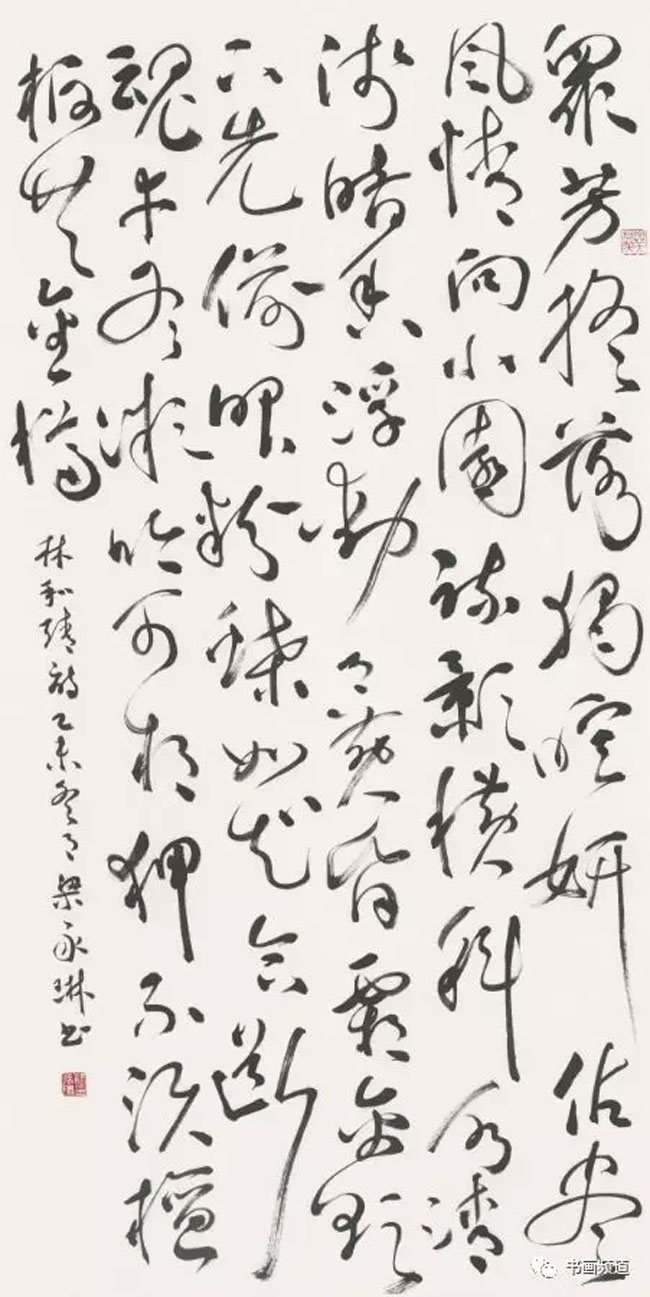 眾芳搖落獨暄妍佔盡
風情向小園疏影橫斜水清
淺暗香浮動月黃昏霜禽欲
下先偷眼粉蝶如知合斷
魂幸有微吟可相狎不須檀
板共金樽
林和靖詩乙未冬月梁永琳書
书画频道